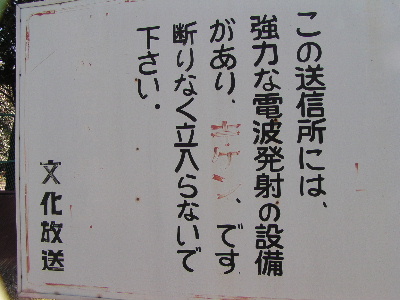 この送信所には、
強力な電波発射の設備
があり、キケン、です
断りなく立入らないで
下さい.
文化放送